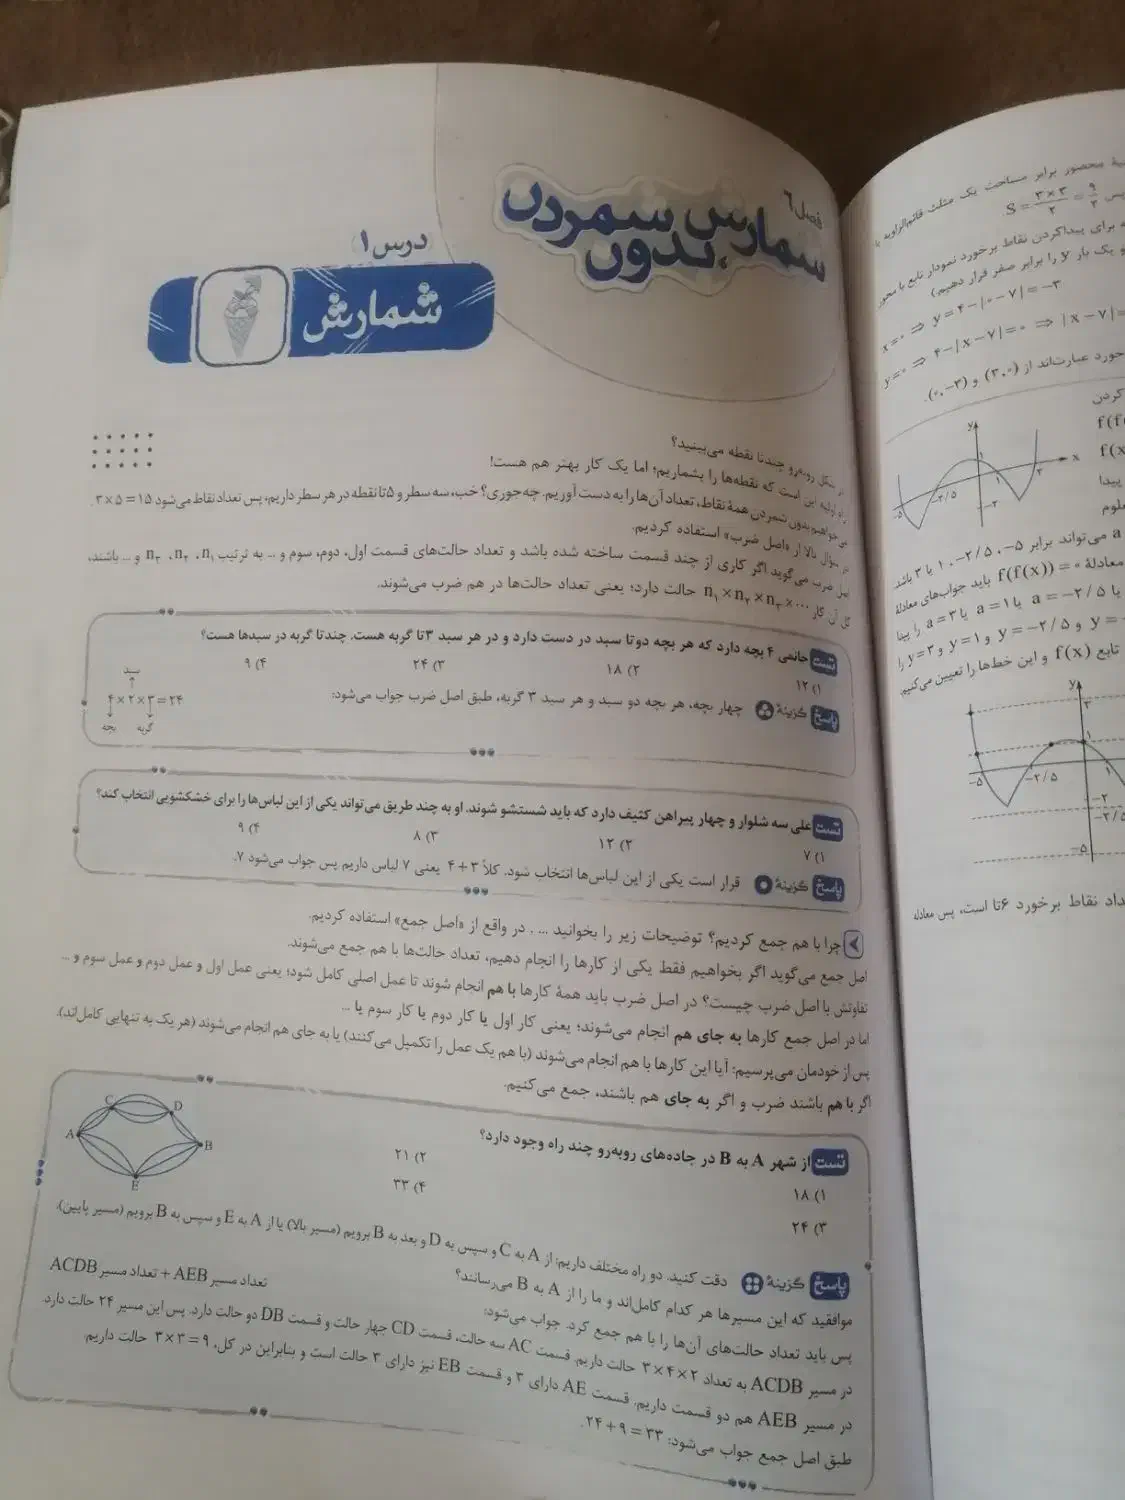 فصل ۶
شمارش بدون شمردن
درس ۱
شمارش
شکل روبه‌رو چندتا نقطه می‌بینید؟
راه اولیه این است که نقطه‌ها را بشماریم؛ اما یک کار بهتر هم هست!
می‌خواهیم بدون شمردن همهٔ نقاط، تعداد آن‌ها را به دست آوریم. چه‌جوری؟ خب، سه سطر و ۵تا نقطه در هر سطر داریم، پس تعداد نقاط می‌شود ۱۵ = ۵×۳ .
در سؤال بالا از «اصل ضرب» استفاده کردیم.
اصل ضرب می‌گوید اگر کاری از چند قسمت ساخته شده باشد و تعداد حالت‌های قسمت اول، دوم، سوم و ... به ترتیب n₁، n₂، n₃ و ... باشند،
کل آن کار n₁×n₂×n₃×... حالت دارد؛ یعنی تعداد حالت‌ها در هم ضرب می‌شوند.
تست خانمی ۴ بچه دارد که هر بچه دوتا سبد در دست دارد و در هر سبد ۳تا گربه هست. چندتا گربه در سبدها هست؟
۱) ۱۲ ۲) ۱۸ ۳) ۲۴ ۴) ۹
پاسخ گزینهٔ ۳ چهار بچه، هر بچه دو سبد و هر سبد ۳ گربه، طبق اصل ضرب جواب می‌شود:
سبد
۴×۲×۳=۲۴
بچه گربه
تست علی سه شلوار و چهار پیراهن کثیف دارد که باید شستشو شوند. او به چند طریق می‌تواند یکی از این لباس‌ها را برای خشکشویی انتخاب کند؟
۱) ۷ ۲) ۱۲ ۳) ۸ ۴) ۹
پاسخ گزینهٔ ۱ قرار است یکی از این لباس‌ها انتخاب شود. کلاً ۳+۴ یعنی ۷ لباس داریم پس جواب می‌شود ۷.
چرا با هم جمع کردیم؟ توضیحات زیر را بخوانید ... . در واقع از «اصل جمع» استفاده کردیم.
اصل جمع می‌گوید اگر بخواهیم فقط یکی از کارها را انجام دهیم، تعداد حالت‌ها با هم جمع می‌شوند.
تفاوتش با اصل ضرب چیست؟ در اصل ضرب باید همهٔ کارها با هم انجام شوند تا عمل اصلی کامل شود؛ یعنی عمل اول و عمل دوم و عمل سوم و ...
اما در اصل جمع کارها به جای هم انجام می‌شوند؛ یعنی کار اول یا کار دوم یا کار سوم یا ...
پس از خودمان می‌پرسیم: آیا این کارها با هم انجام می‌شوند (با هم یک عمل را تکمیل می‌کنند) یا به جای هم انجام می‌شوند (هر یک به تنهایی کامل‌اند).
اگر با هم باشند ضرب و اگر به جای هم باشند، جمع می‌کنیم.
تست از شهر A به B در جاده‌های روبه‌رو چند راه وجود دارد؟
۱) ۱۸ ۲) ۲۱
۳) ۲۴ ۴) ۳۳
A C D B E
پاسخ گزینهٔ ۴ دقت کنید. دو راه مختلف داریم: از A به C و سپس به D و بعد به B برویم (مسیر بالا) یا از A به E و سپس به B برویم (مسیر پایین).
موافقید که این مسیرها هر کدام کامل‌اند و ما را از A به B می‌رسانند؟
پس باید تعداد حالت‌های آن‌ها را با هم جمع کرد. جواب می‌شود: تعداد مسیر AEB + تعداد مسیر ACDB
در مسیر ACDB به تعداد ۳×۴×۲ حالت داریم. قسمت AC سه حالت، قسمت CD چهار حالت و قسمت DB دو حالت دارد. پس این مسیر ۲۴ حالت دارد.
در مسیر AEB هم دو قسمت داریم. قسمت AE دارای ۳ و قسمت EB نیز دارای ۳ حالت است و بنابراین در کل، ۹=۳×۳ حالت داریم.
طبق اصل جمع جواب می‌شود: ۲۴+۹=۳۳ .
محصور برابر مساحت یک مثلث قائم‌الزاویه با
S = ۳×۳/۲ = ۹/۲
برای پیداکردن نقاط برخورد نمودار تابع با محور
و یک بار y را برابر صفر قرار دهیم.)
x=۰ ⇒ y=۴−|۰−۷|=−۳
y=۰ ⇒ ۴−|x−۷|=۰ ⇒ |x−۷|=
خورد عبارت‌اند از (۳,۰) و (۰,−۳).
کردن
y x
۱ ۱ ۳ −۵ −۲/۵ −۲
پیدا
معلوم
a می‌تواند برابر ۵−، ۲/۵−، ۱ یا ۳ باشد.
معادلهٔ f(f(x))=۰ باید جواب‌های معادلهٔ
یا a=−۲/۵ یا a=۱ یا a=۳ را پیدا
y=−۲/۵ و y=۱ و y=۳ را
تابع f(x) و این خط‌ها را تعیین می‌کنیم.
y
۳ ۱ ۱ −۵ −۲/۵ −۲ −۲/۵ −۵
تعداد نقاط برخورد ۶تا است، پس معادله